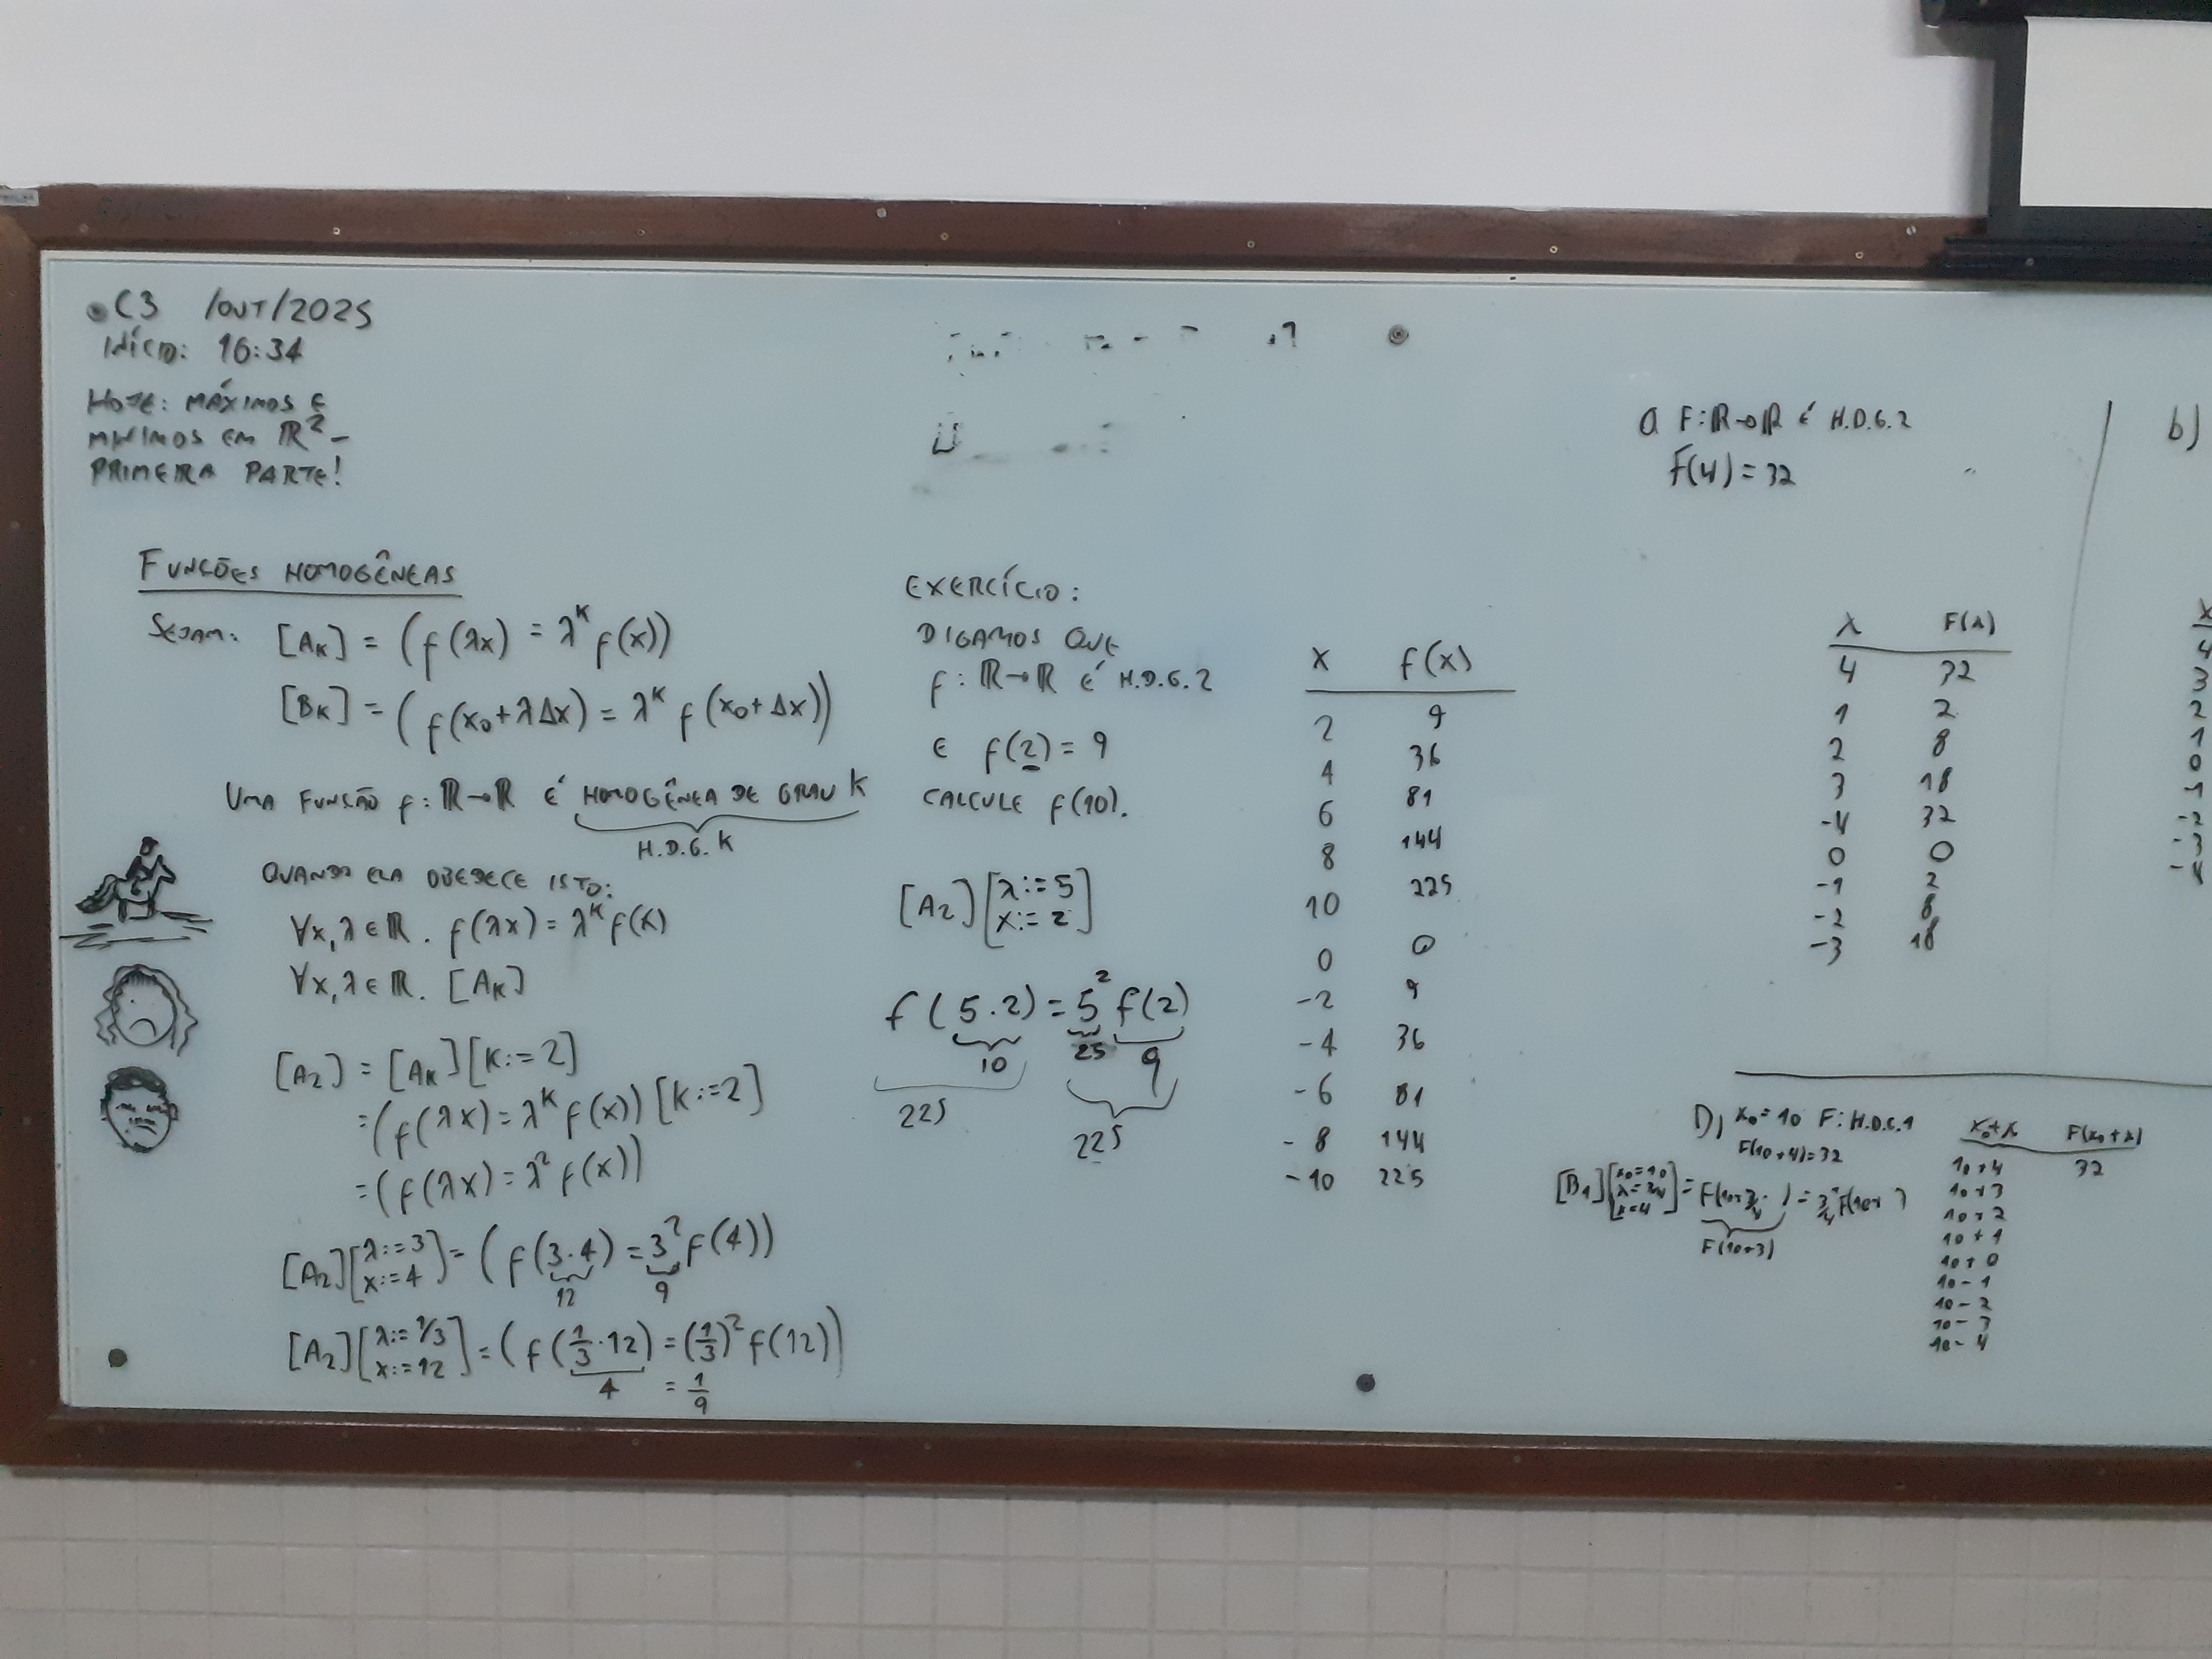 C3 /OUT/2025
INÍCIO: 16:34
HOJE: MÁXIMOS E
MÍNIMOS EM ℝ² –
PRIMEIRA PARTE!
FUNÇÕES HOMOGÊNEAS
SEJAM: [A_K] = (f(λx) = λ^K f(x))
[B_K] = (f(x₀+λΔx) = λ^K f(x₀+Δx))
UMA FUNÇÃO f: ℝ→ℝ É HOMOGÊNEA DE GRAU K
H.D.G. K
QUANDO ELA OBEDECE ISTO:
∀x,λ∈ℝ. f(λx) = λ^K f(x)
∀x,λ∈ℝ. [A_K]
[A₂] = [A_K][K:=2]
=(f(λx) = λ^K f(x))[K:=2]
=(f(λx) = λ² f(x))
[A₂][λ:=3 x:=4] = (f(3·4) = 3² f(4))
12 9
[A₂][λ:=1/3 x:=12] = (f(1/3·12) = (1/3)² f(12))
4 = 1/9
EXERCÍCIO:
DIGAMOS QUE
f: ℝ→ℝ É H.D.G.2
E f(2) = 9
CALCULE f(10).
[A₂][λ:=5 x:=2]
f(5.2) = 5² f(2)
10 25 9
225 225
x f(x)
2 9
4 36
6 81
8 144
10 225
0 0
-2 9
-4 36
-6 81
-8 144
-10 225
a F: ℝ→ℝ É H.D.G.2
F(4) = 32
λ F(λ)
4 32
1 2
2 8
3 18
-4 32
0 0
-1 2
-2 8
-3 18
b)
x
4
3
2
1
0
-1
-2
-3
-4
D) x₀=10 F: H.D.G.1
F(10+4)=32
[B₁][x₀=10 x=4] = F(10+3/4· ) = 3/4 F(10+ )
F(10+3)
x₀+x F(x₀+x)
10+4 32
10+3
10+2
10+1
10+0
10-1
10-2
10-3
10-4